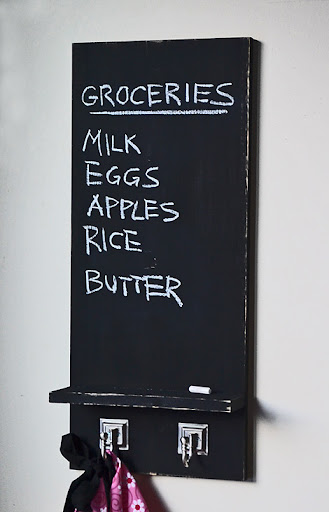 GROCERIES
MILK
EGGS
APPLES
RICE
BUTTER